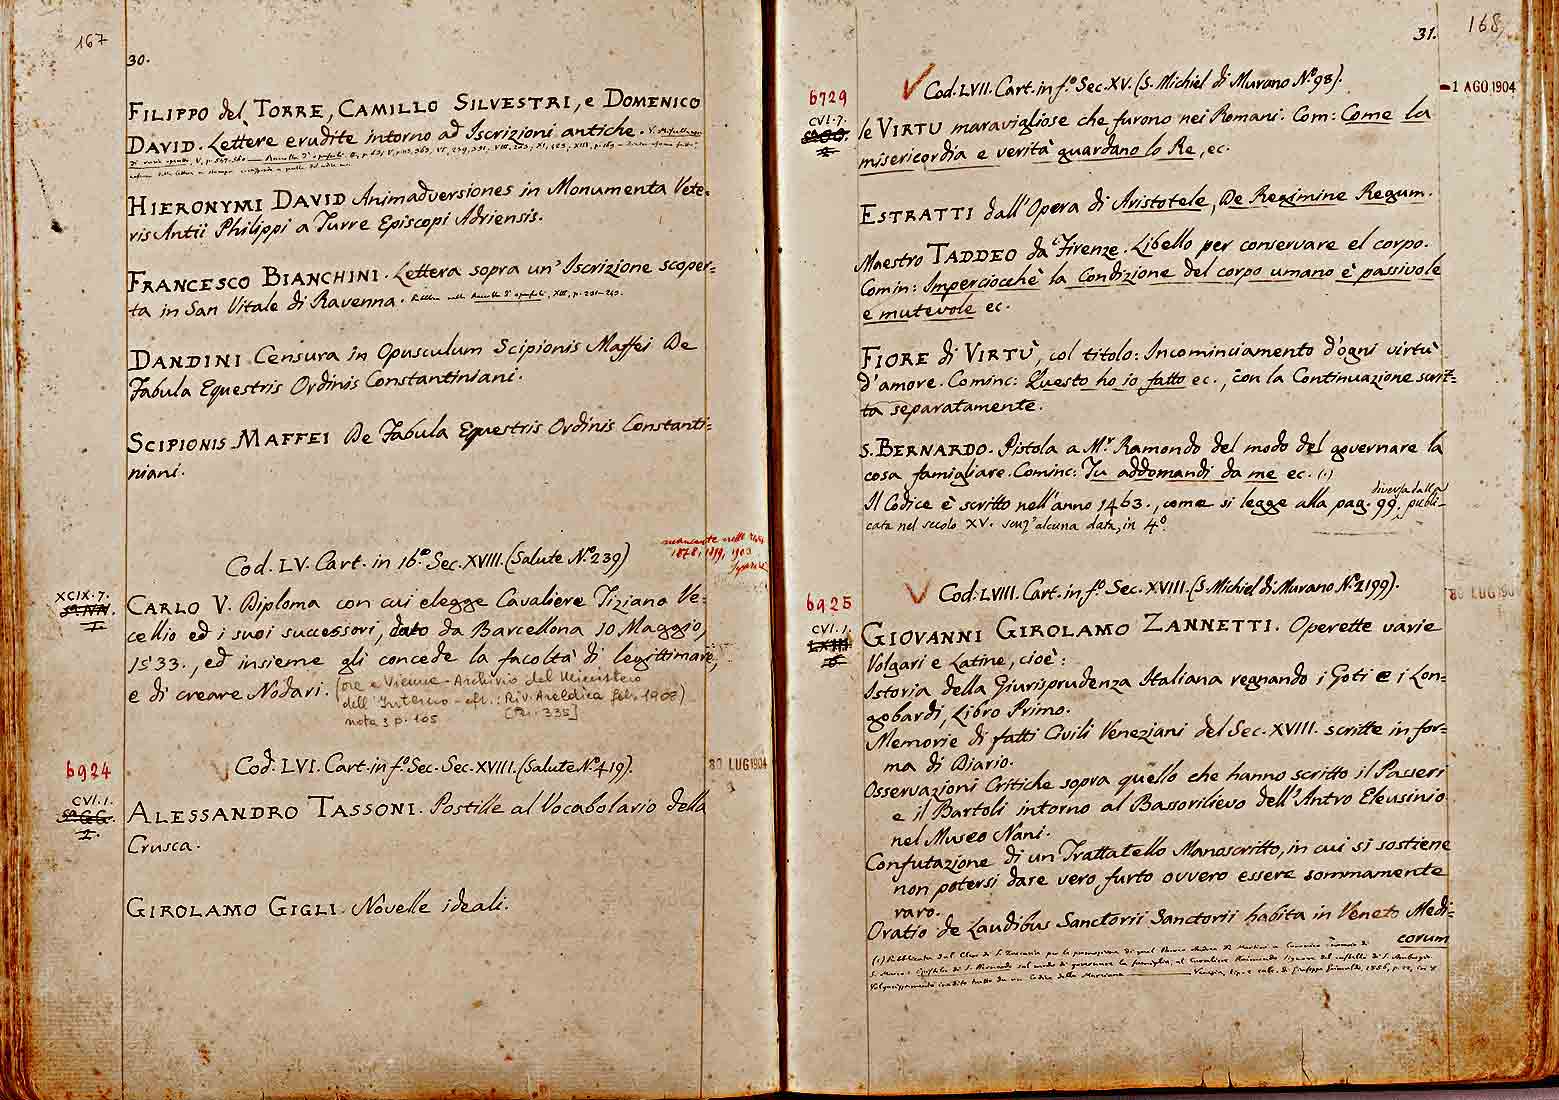 167
30.
FILIPPO del TORRE, CAMILLO SILVESTRI, e DOMENICO
DAVID. Lettere erudite intorno ad Iscrizioni antiche.
HIERONYMI DAVID Animadversiones in Monumenta Vete-
ris Antii Philippi a Turre Episcopi Adriensis.
FRANCESCO BIANCHINI. Lettera sopra un' Iscrizione scoper-
ta in San Vitale di Ravenna. XIII, p.
DANDINI Censura in Opusculum Scipionis Maffei De
Fabula Equestris Ordinis Constantiniani.
SCIPIONIS MAFFEI De Fabula Equestris Ordinis Constanti-
niani.
Cod. LV. Cart. in 16.º Sec. XVIII. (Salute Nº 239)
mancante nelle
1878, 1899, 1903
XCIX.7.
CARLO V. Diploma con cui elegge Cavaliere Tiziano Ve-
cellio ed i suoi successori, dato da Barcellona 10 Maggio,
1533., ed insieme gli concede la facoltà di legittimare,
e di creare Nodari. (ore e Vienna - Archivio del Ministero
dell'Interno - cfr.: Riv. Araldica feb. 1908)
nota 3 p. 105 [Per. 335]
6924
Cod. LVI. Cart. in fº Sec. Sec. XVIII. (Salute Nº 419).
30 LUG 1904
CVI.1.
ALESSANDRO TASSONI. Postille al Vocabolario della
Crusca.
GIROLAMO GIGLI. Novelle ideali.
168
31.
6729
Cod. LVII. Cart. in fº Sec. XV. (S. Michiel di Murano Nº 98).
-1 AGO 1904
CVI.7.
le VIRTU maravigliose che furono nei Romani. Com: Come la
misericordia e verità guardano lo Re, ec.
ESTRATTI dall'Opera di Aristotele, De Regimine Regum.
Maestro TADDEO da Firenze. Libello per conservare el corpo.
Comin: Imperciocchè la Condizione del corpo umano è passivole
e mutevole ec.
FIORE di VIRTÙ, col titolo: Incominciamento d'ogni virtù
d'amore. Cominc: Questo ho io fatto ec., con la Continuazione scrit-
ta separatamente.
S. BERNARDO. Pistola a Mr. Ramondo del modo del governare la
cosa famigliare. Cominc: Tu addomandi da me ec. (1)
Il Codice è scritto nell'anno 1463., come si legge alla pag. 99. diversa dalla publi-
cata nel secolo XV. senz'alcuna data, in 4º.
6925
Cod. LVIII. Cart. in fº Sec. XVIII. (S. Michiel di Murano Nº 2199).
30 LUG 190
CVI.1.
LXIII
GIOVANNI GIROLAMO ZANNETTI. Operette varie
Volgari e Latine, cioè:
Istoria della Giurisprudenza Italiana regnando i Goti e i Lon-
gobardi, Libro Primo.
Memorie di fatti Civili Veneziani del Sec. XVIII. scritte in for-
ma di Diario.
Osservazioni Critiche sopra quello che hanno scritto il Passeri
e il Bartoli intorno al Bassorilievo dell'Antro Eleusinio
nel Museo Nani.
Confutazione di un Trattatello Manoscritto, in cui si sostiene
non potersi dare vero furto ovvero essere sommamente
raro.
Oratio de Laudibus Sanctorii Sanctorii habita in Veneto Medi-
corum